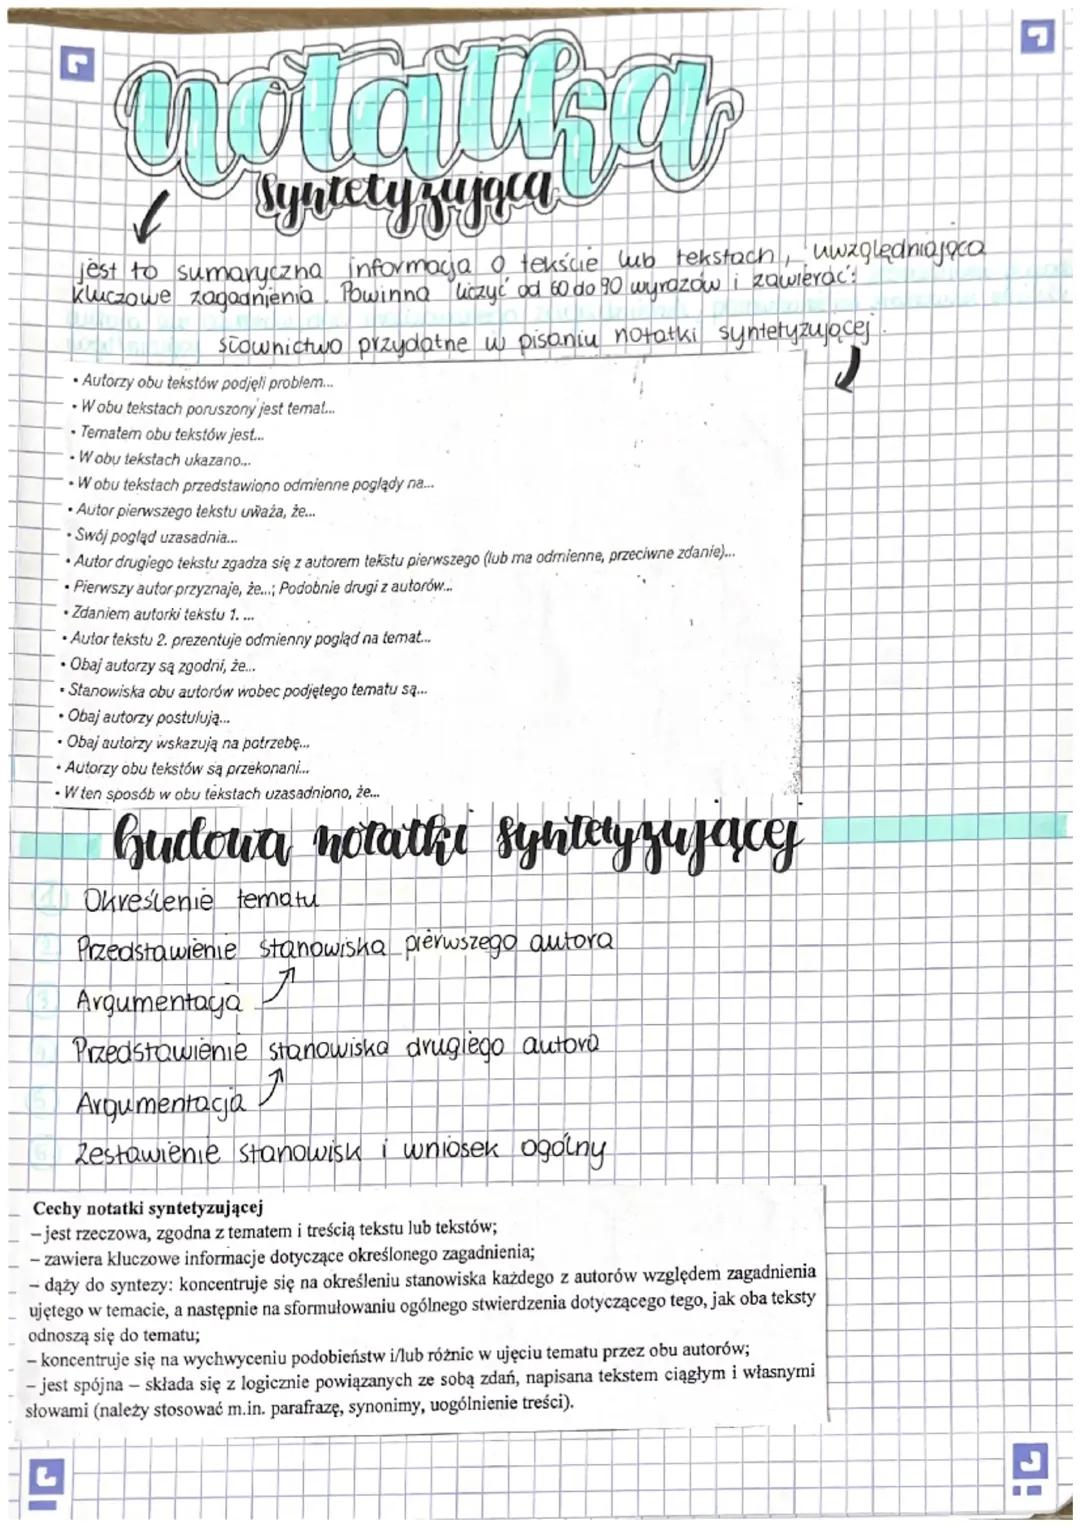 notatka
syntetyzująca
jest to sumaryczna informacja o tekście lub tekstach, uwzględniająca
kluczowe zagadnienia. Powinna liczyć od 60 do 90 wyrazów i zawierać:
słownictwo przydatne w pisaniu notatki syntetyzującej.
• Autorzy obu tekstów podjęli problem...
• W obu tekstach poruszony jest temat...
• Tematem obu tekstów jest...
• W obu tekstach ukazano...
• W obu tekstach przedstawiono odmienne poglądy na...
• Autor pierwszego tekstu uważa, że...
• Swój pogląd uzasadnia...
• Autor drugiego tekstu zgadza się z autorem tekstu pierwszego (lub ma odmienne, przeciwne zdanie)...
• Pierwszy autor przyznaje, że...; Podobnie drugi z autorów...
• Zdaniem autorki tekstu 1. ...
• Autor tekstu 2. prezentuje odmienny pogląd na temat...
• Obaj autorzy są zgodni, że...
• Stanowiska obu autorów wobec podjętego tematu są...
• Obaj autorzy postulują...
• Obaj autorzy wskazują na potrzebę...
• Autorzy obu tekstów są przekonani...
• W ten sposób w obu tekstach uzasadniono, że...
budowa notatki syntetyzującej
1 Określenie tematu
2 Przedstawienie stanowiska pierwszego autora
3 Argumentacja
4 Przedstawienie stanowiska drugiego autora
5 Argumentacja
6 Zestawienie stanowisk i wniosek ogólny
Cechy notatki syntetyzującej
– jest rzeczowa, zgodna z tematem i treścią tekstu lub tekstów;
– zawiera kluczowe informacje dotyczące określonego zagadnienia;
– dąży do syntezy: koncentruje się na określeniu stanowiska każdego z autorów względem zagadnienia
ujętego w temacie, a następnie na sformułowaniu ogólnego stwierdzenia dotyczącego tego, jak oba teksty
odnoszą się do tematu;
– koncentruje się na wychwyceniu podobieństw i/lub różnic w ujęciu tematu przez obu autorów;
– jest spójna – składa się z logicznie powiązanych ze sobą zdań, napisana tekstem ciągłym i własnymi
słowami (należy stosować m.in. parafrazę, synonimy, uogólnienie treści).